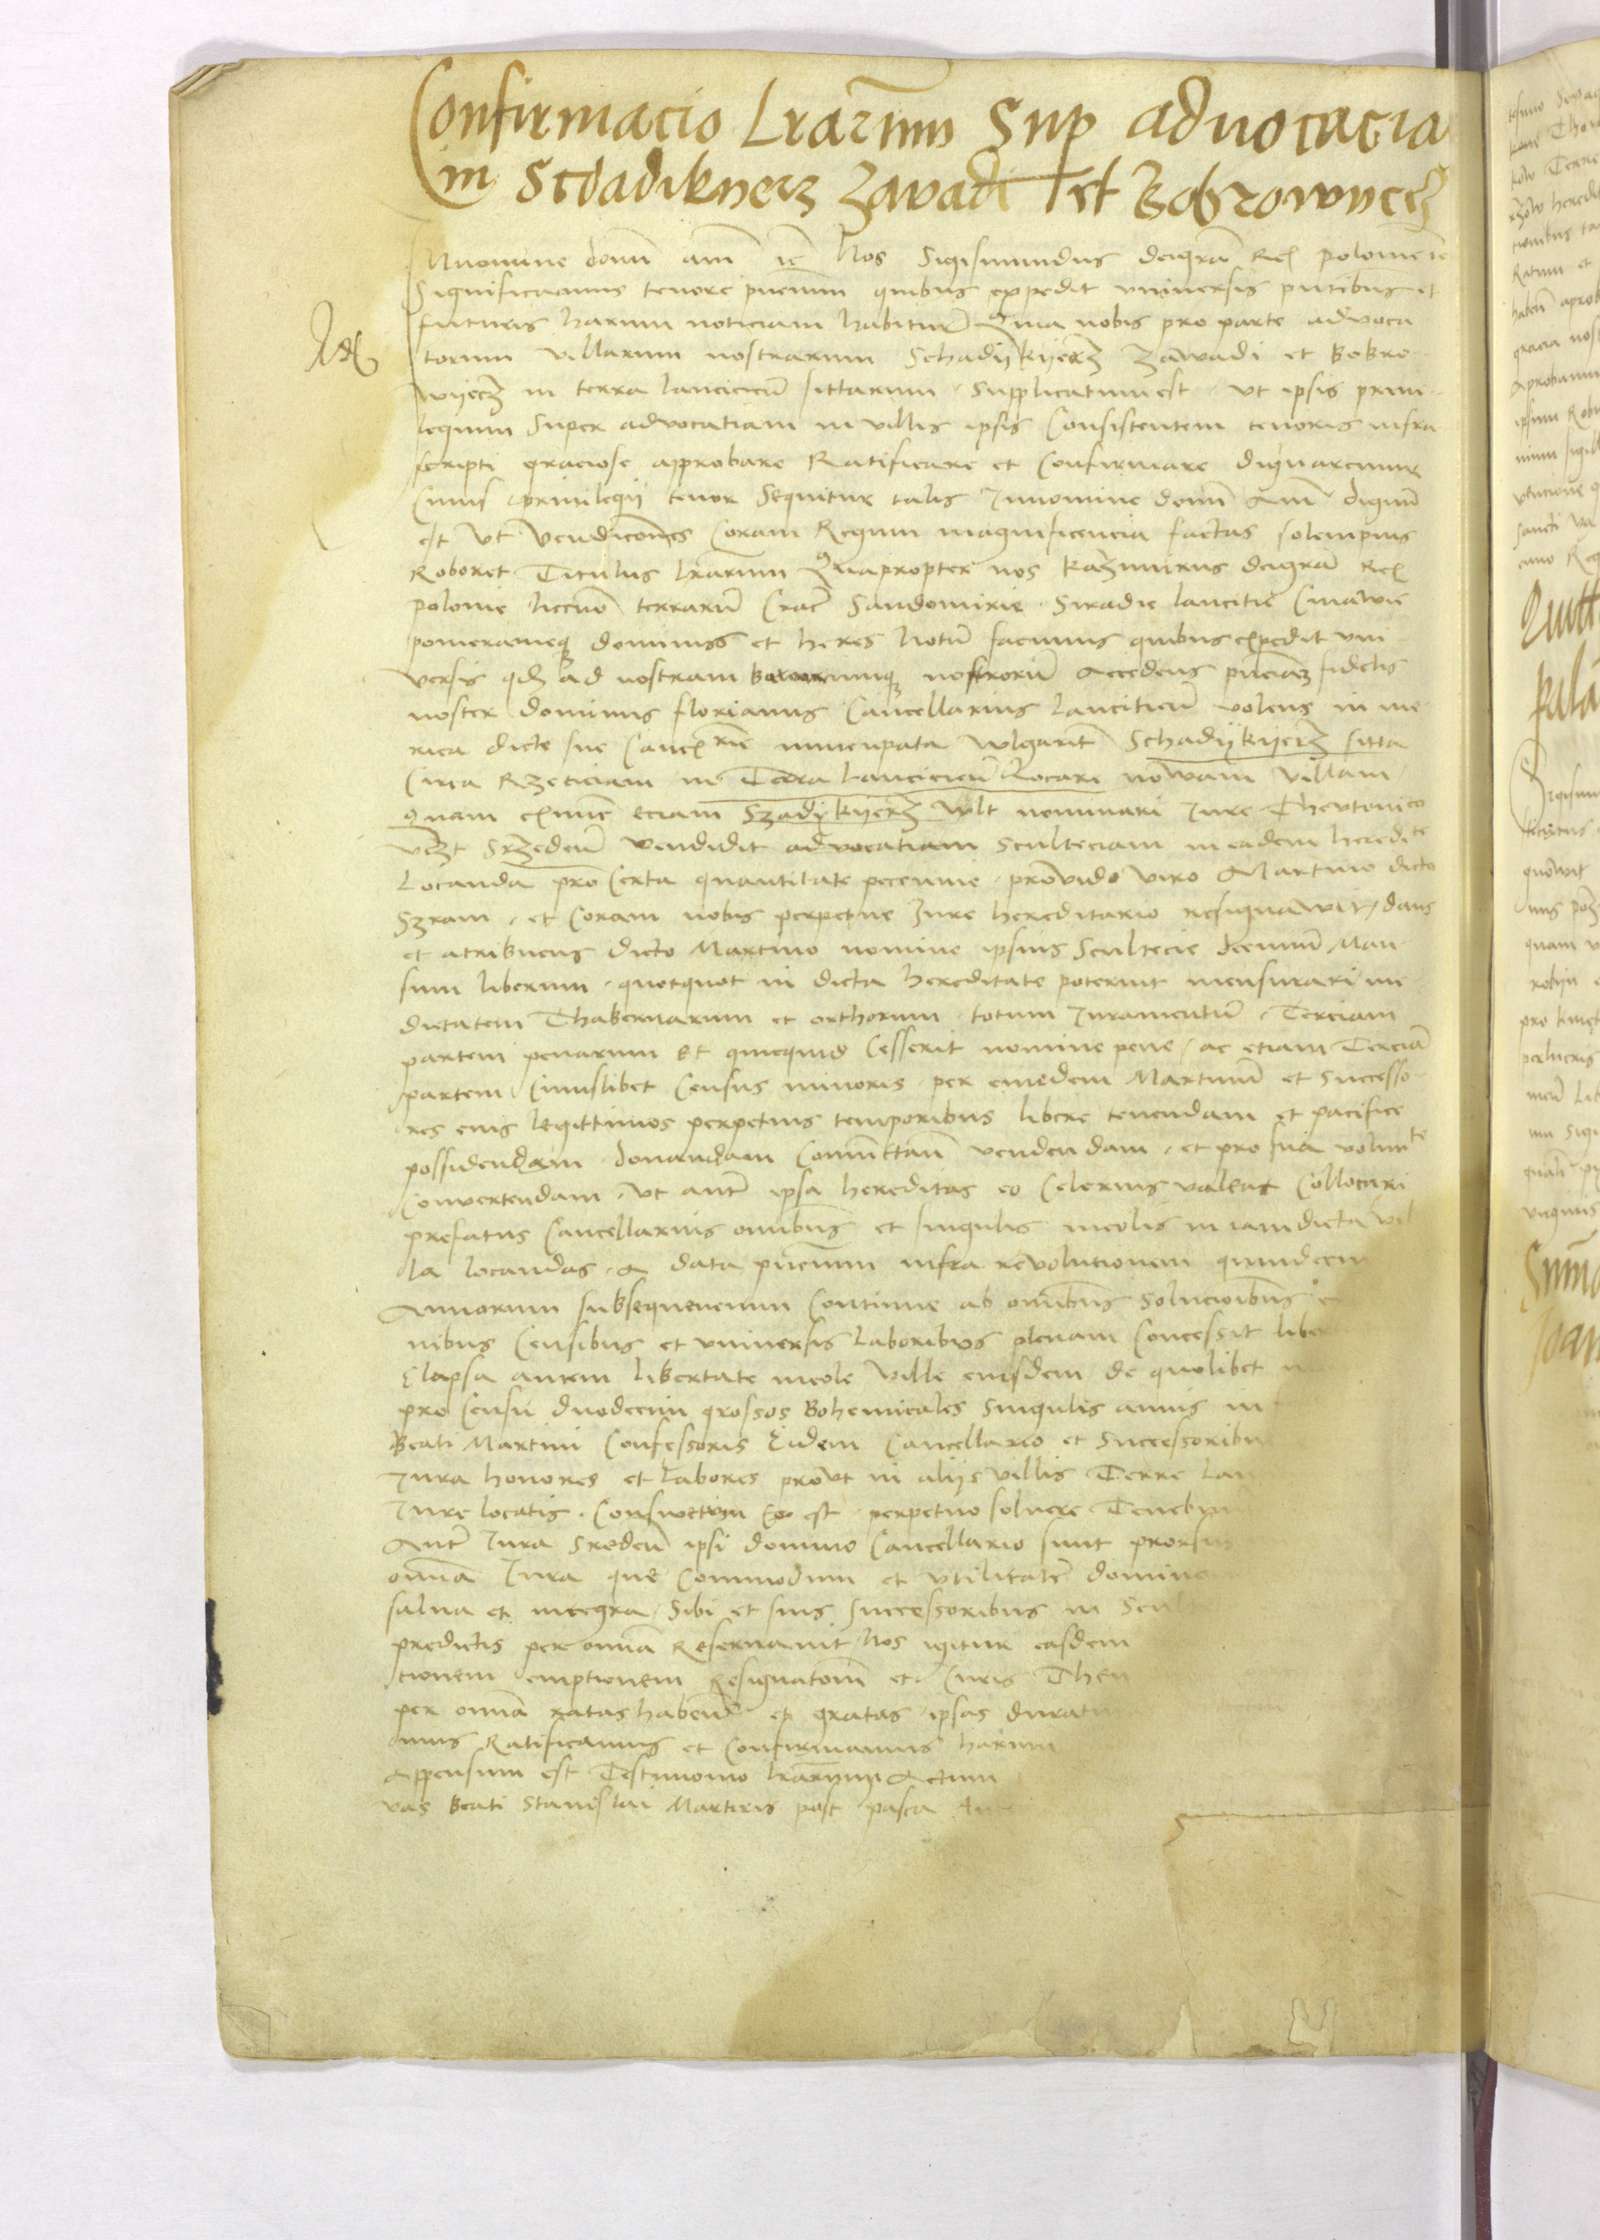 Confirmacio Lrarum Sup advocacia
in Schadikyerz Zavadi et Bobrownycz
Innomine domi am ic Nos Sigismundus deigra Rex polonie ic
Significamus tenore pncium quibus expedit vniversis pntibus et
futuris harum noticiam habitur Quia nobis pro parte advoca
torum villarum nostrarum Schadijkyerz Zawadi et Bobro
wyecz in terra lanciciem sittarum Supplicatum est vt ipsis privi
legium Super advocatiam in villis ipsis Consistentem tenoris infra
scripti graciose approbare Ratificare et Confirmare dignaremur
Cuius privilegii tenor Sequitur talis Innomine domi Am dignu
est vt Vendicones Coram Regum magnificencia factas solempnis
Roboret Titulus lrarum Quapropter nos Kazimirus deigra Rex
polonie necno terraru Crac Sandomirie Siradie lancitie Cuiawie
pomeranieq dominus et heres Notu facimus quibus expedit vni
versis qd ad nostram baronumq nostroru Accedens pnciam fidelis
noster dominus florianus Cancellarius Lanciticu volens in me
rica dicte sue Cancrie nuncupata wlgarit Schadijkyerz sitta
Circa Rzeticiam in Terra Lanciciem Locari nowam villam
quam exnunc eciam Szadijkyerz wlt nominari Jure Theutonico
vdzt Srzedem vendidit advocatiam Sculteciam in eadem heredite
Locanda pro Certa quantitate peccunie provido viro Martino dicto
Szram et Coram nobis perpetue Jure hereditario resignawit dans
et atribuens dicto Martino nomine ipsius Scultecie decimum Man
sum liberum quotquot in dicta hereditate poterint mensurari me
dietatem Thabernarum et orthorum totum Juramentum Terciam
partem penarum Et quicquid Cesserit nomine pene ac etiam Tercia
partem Cuiuslibet Census minoris per eundem Martinu et Successo
res eius legittimos perpetuis temporibus libere tenendam et pacifice
possidendam donandam Comuttan vendendam et pro sua volunte
Convertendam vt aute ipsa hereditas eo Celerius valeat Collocari
prefatus Cancellarius omibus et singulis incolis in iamdicta vil
la locandas A data pncium infra revolutionem quindecim
Annorum subsequencium Continue ab omibus Solucioibus
nibus Censibus et vniversis Laboribus plenam Concessit liber
Elapsa autem libertate incole ville eiusdem de quolibet
pro Censu duodecim grossos Bohemicales Singulis annis in
Beati Martini Confessoris Eidem Cancellario et Successoribu
Jura honores et Labores provt in aliis villis Terre Lan
Jure locatis Conswetum est perpetuo solvere Tenebun
Aute Jura Sredem ipsi domino Cancellario sunt prorsus
omnia Jura que Commodum et vtilitate domino
salva et integra Sibi et suis Successoribus in Scult
predictis per omnia Reservavit Nos igitur easdem
cionem emptionem Resignatiom et Juris Theu
per omnia ratas habend et gratas ipsas duratu
mus Ratificamus et Confirmamus harum
appensum est Testimonio lrarum Actum
vas Beati Stanislai Martiris post pasca